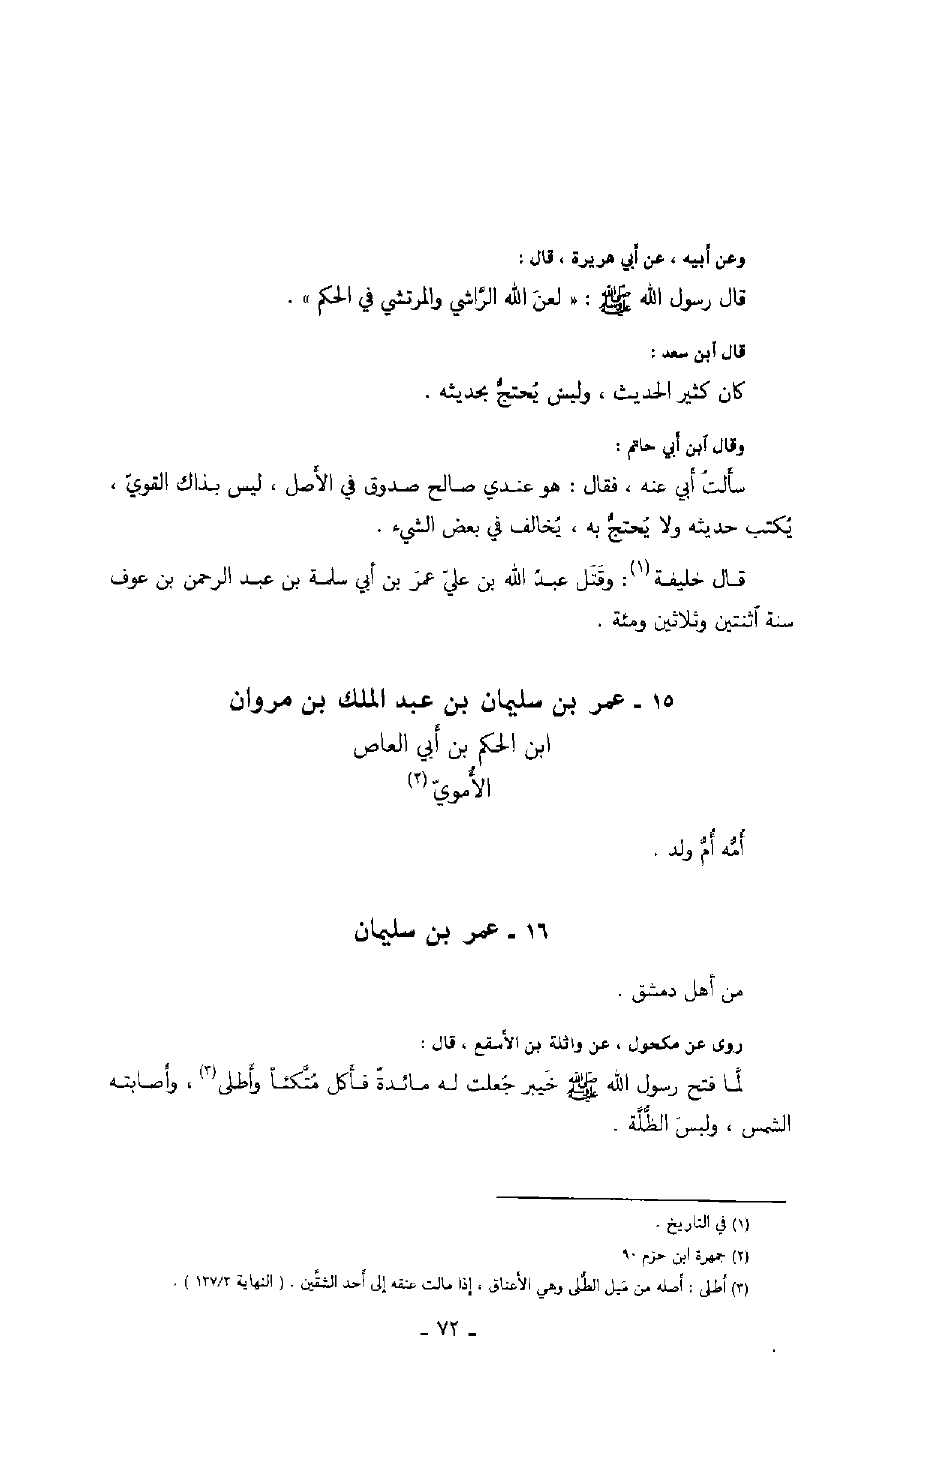 وعن أبيه ، عن أبي هريرة ، قال :
قال رسول الله ﷺ : « لعنَ الله الرَّاشي والمرتشي في الحكم » .
قال ابن سعد :
كان كثير الحديث ، وليس يُحتجُّ بحديثه .
وقال ابن أبي حاتم :
سألتُ أبي عنه ، فقال : هو عندي صالح صدوق في الأصل ، ليس بذاك القويّ ،
يُكتب حديثه ولا يُحتجُّ به ، يُخالف في بعض الشيء .
قال خليفة(١) : وقَتَل عبدُ الله بن عليّ عمرَ بن أبي سلمة بن عبد الرحمن بن عوف
سنة اثنتين وثلاثين ومئة .
١٥ ـ عمر بن سليمان بن عبد الملك بن مروان
ابن الحكم بن أبي العاص
الأُمويّ(٢)
أُمُّه أُمُّ ولد .
١٦ ـ عمر بن سليمان
من أهل دمشق .
روى عن مكحول ، عن واثلة بن الأسقع ، قال :
لَمَّا فتح رسول الله ﷺ خَيبر جُعلت له مائدةٌ فأكل مُتَّكئاً وأَطلى(٣) ، وأصابته
الشمس ، ولبسَ الظُّلَّة .
(١) في التاريخ .
(٢) جمهرة ابن حزم ٩٠
(٣) أَطلى : أصله من مَيل الطُّلى وهي الأعناق ، إذا مالت عنقه إلى أحد الشقَّين . ( النهاية ١٣٧/٣ ) .
ـ ٧٢ ـ